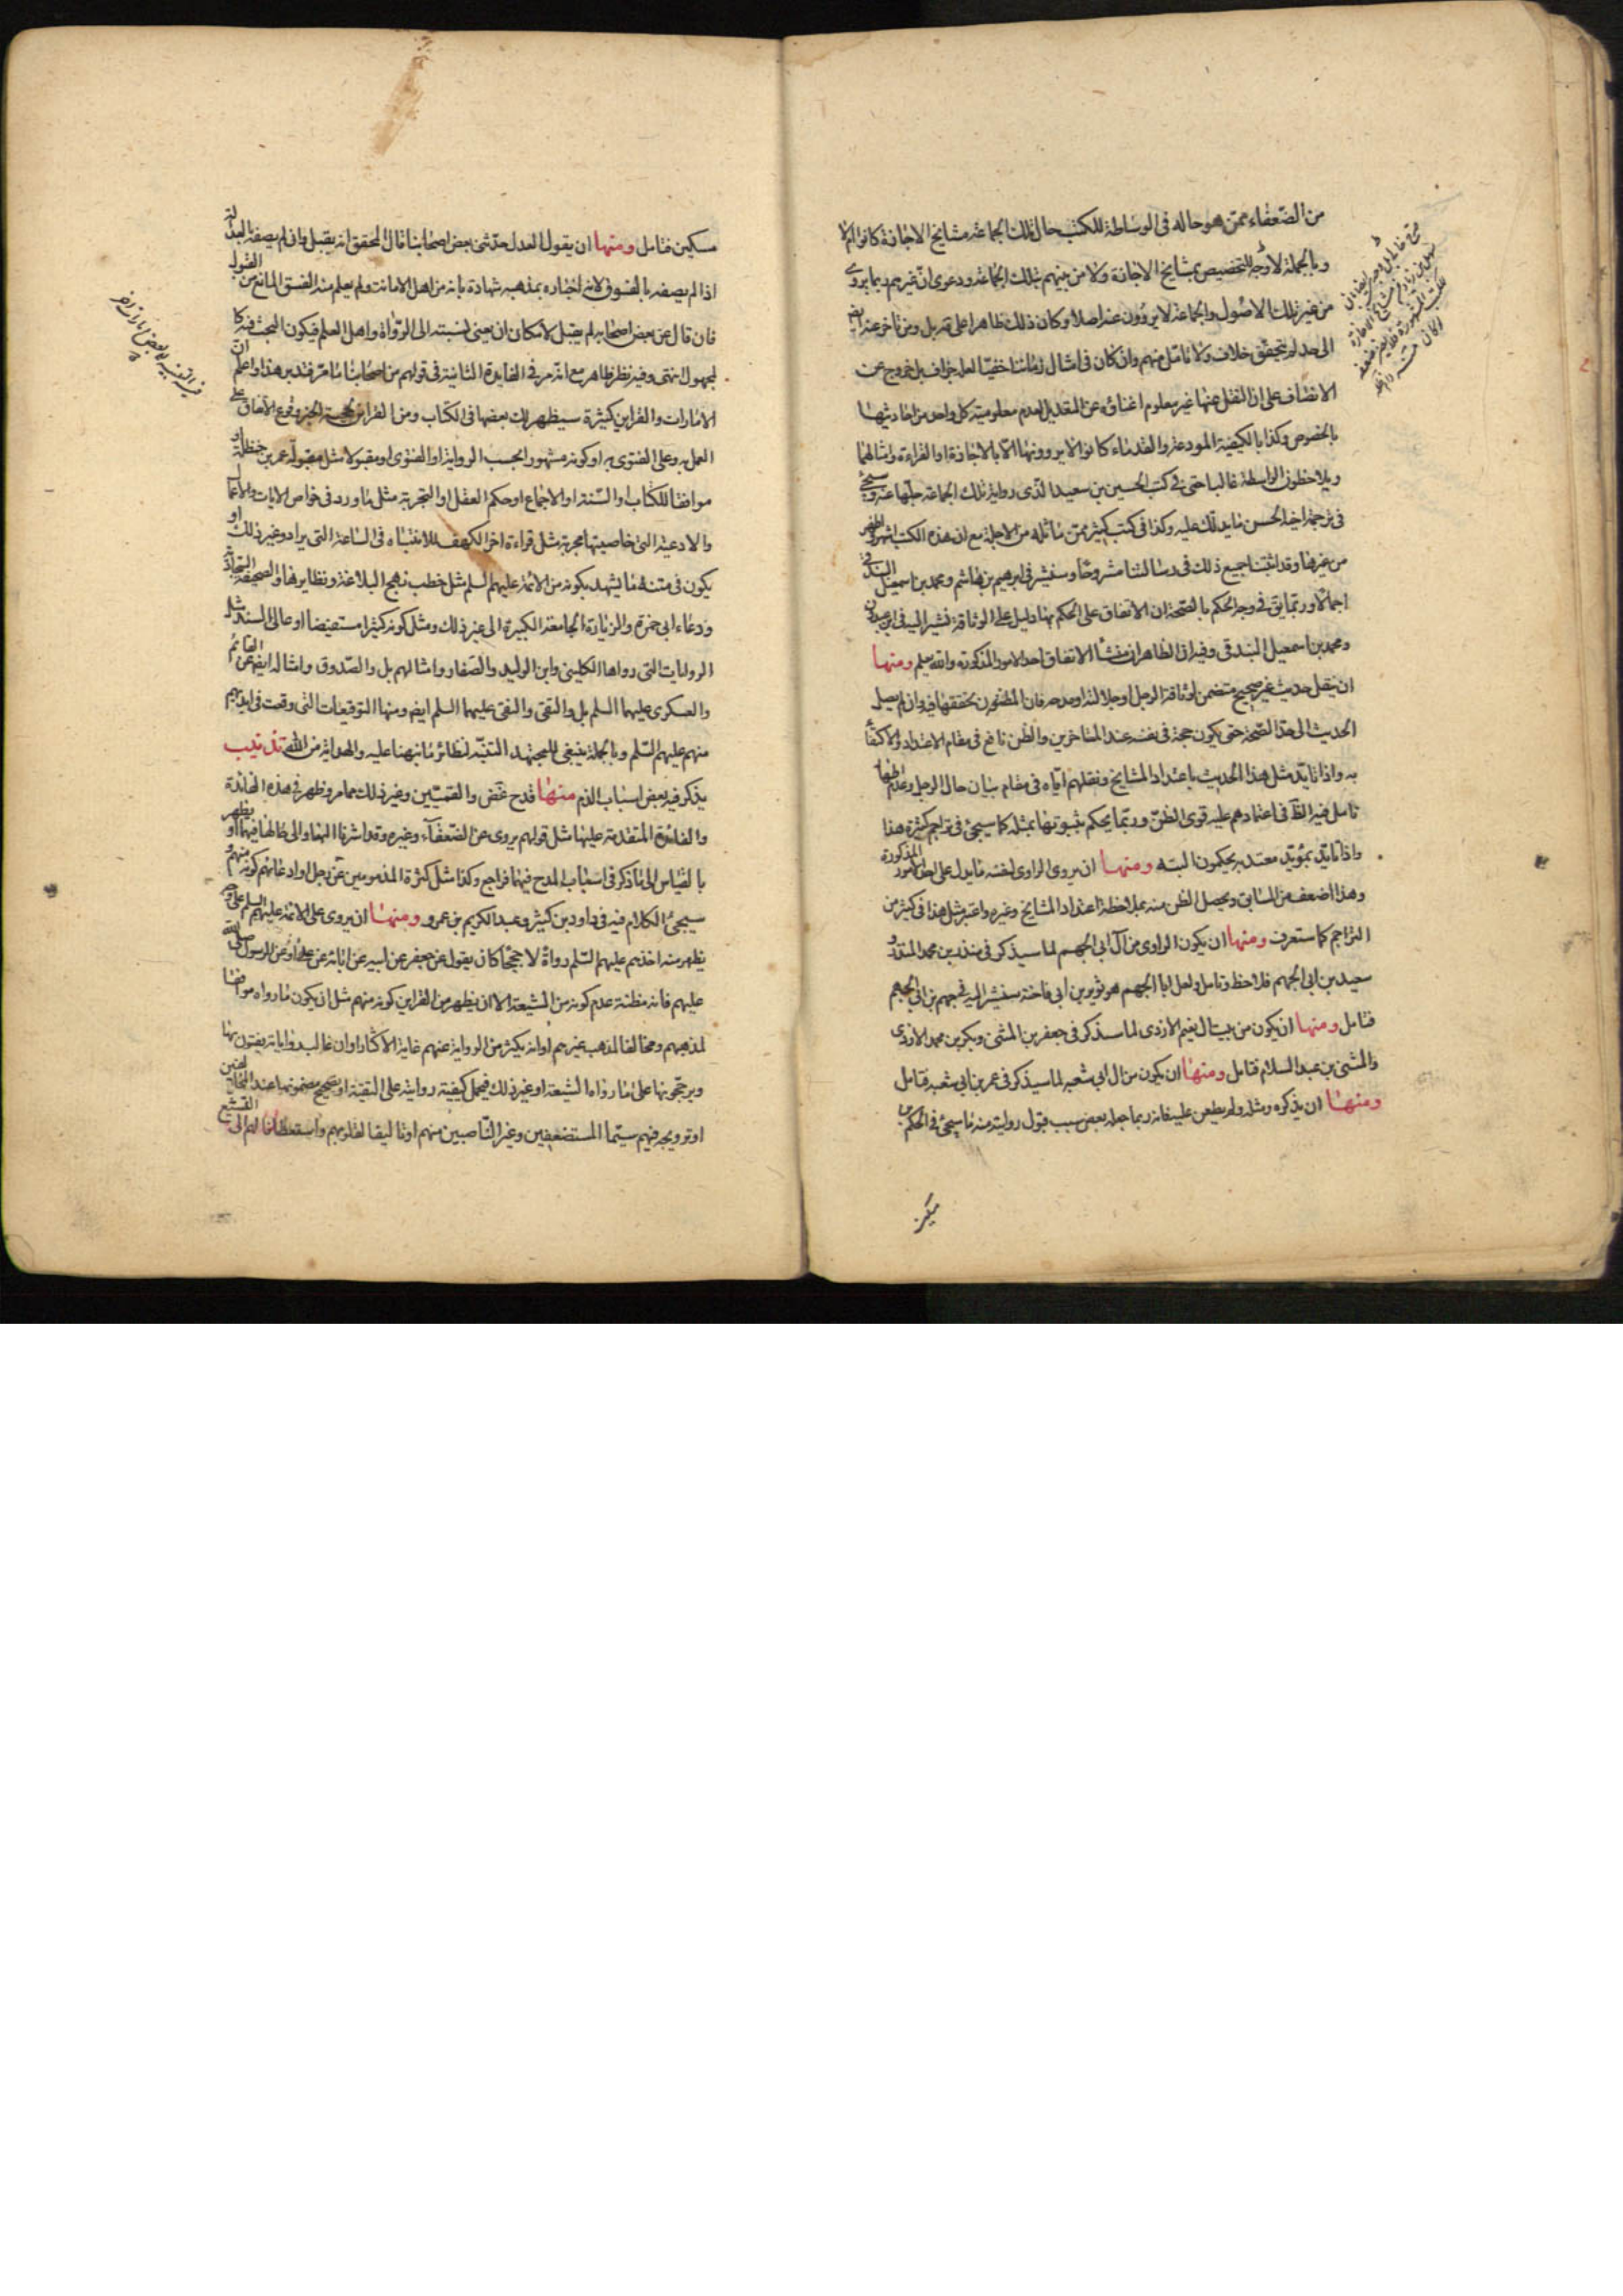 من الضعفاء ممن هو حاله في الوساطة للكتب حال تلك الجماعة مشايخ الاجازة كانوا ام لا
وبالجملة لا وجه للتخصيص بمشايخ الاجازة ولا من بينهم بتلك الجماعة ودعوى ان غيرهم ربما يروى
من غير تلك الاصول والجماعة لا يروون عنه اصلا وكان ذلك ظاهرا على بل ومن تاخر عنه ايضا
الى حد لم يتحقق خلاف ولا تامل منهم وان كان في امثال زماننا خفيا لعله جزاف بل خروج عن
الانصاف على ان النقل عنها غير معلوم اغناؤه عن التعديل لعدم معلومية كل واحد من احاديثها
بالخصوص وكذا بالكيفية المودعة والقدماء كانوا لا يروونها الا بالاجازة او القراءة وامثالهما
ويلاحظون الواسطة غالبا حتى في كتب الحسين بن سعيد الذي رواية تلك الجماعة جلها عنه وسيجئ
في ترجمة اخيه الحسن ما يدلك عليه وكذا في كتب كثير ممن ماثله من الاجلة مع ان هذه الكتب اشهر واظهر
من غيرها وقد اثبتنا جميع ذلك في رسالتنا مشروحا وسنشير في ابرهيم بن هاشم ومحمد بن اسمعيل البندقي
اجمالا وربما يق في وجه الحكم بالصحة ان الاتفاق على الحكم بها دليل على الوثاقة فنشير اليه في ابن عبدون
ومحمد بن اسمعيل البندقي وفيه ان الظاهر ان منشأ الاتفاق احد الامور المذكورة والله يعلم ومنها
ان ينقل حديث غير صحيح متضمن لوثاقة الرجل او جلالته او مدحه فان المظنون تحققها فيه وان لم يصل
الحديث الى حد الصحة حتى يكون حجة في نفسه عند المتاخرين والظن نافع في مقام الاعتداد والاكتفأ
به واذا تايد مثل هذا الحديث باعتداد المشايخ ونقلهم اياه في مقام بيان حال الرجل وعدم اظهار
تامل فيه الظ في اعتمادهم عليه قوى الظن وربما يحكم بثبوتها بمثله كما سيجئ في تراجم كثيرة هذا
واذا تايد بمؤيد معتد به يحكمون البتة ومنها ان يروى الراوى لنفسه ما يدل على احد الامور المذكورة
وهذا اضعف من السابق ويحصل الظن منه بملاحظة اعتداد المشايخ وغيره واعتبر مثل هذا في كثير من
التراجم كما ستعرف ومنها ان يكون الراوى من آل ابي الجهم لما سيذكر في منذر بن محمد المنذر و
سعيد بن ابي الجهم فلاحظ وتامل ولعل ابا الجهم هو ثوير بن ابي فاخته سنشير اليه في جهم بن ابي الجهم
فتامل ومنها ان يكون من بيت آل نعيم الازدى لما سيذكر في جعفر بن المثنى وبكر بن محمد الازدى
والمثنى بن عبد السلام فتامل ومنها ان يكون من ال ابي شعبه لما سيذكر في عمر بن ابي شعبه فتامل
ومنها ان يذكره ومثله ولم يطعن عليه فانه ربما جعله بعض سبب قبول روايته منه ما سيجئ في الحكم بن
مسكين
مسكين فتامل ومنها ان يقول العدل حدثني بعض اصحابنا قال المحقق انه يقبل وان لم يصفه بالعدالة
اذا لم يصفه بالفسوق لان اخباره بمذهبه شهادة بانه من اهل الامانت ولم يعلم منه الفسق المانع من القبول
فان قال عن بعض اصحابه لم يقبل لامكان ان يعنى نسبته الى الرواة واهل العلم فيكون البحث فيه كا
لمجهول انتهى وفيه نظر ظاهر مع انه مر في الفايدة الثانية في قولهم من اصحابنا ما مر فتدبر هذا واعلم ان
الامارات والقراين كثيرة سيظهر لك بعضها في الكتاب ومن القراين لحجية الخبر وقوع الاتفاق على
العمل به وعلى الفتوى به او كونه مشهورا بحسب الرواية او الفتوى او مقبولا مثل مقبولة عمر بن حنظلة او
موافقا للكتاب او السنة او الاجماع او حكم العقل او التجربة مثل ما ورد في خواص الايات والاعمال
والادعية التى خاصيتها مجربة مثل قراءة اخر الكهف للانتباه في الساعة التى يراد وغير ذلك او
يكون في متنه ما يشهد بكونه من الائمة عليهم السلم مثل خطب نهج البلاغة ونظايرها والصحيفة السجادية
ودعاء ابي حمزة والزيارة الجامعة الكبيرة الى غير ذلك ومثل كونه كثيرا مستفيضا او عالى السند مثل
الروايات التى رواها الكليني وابن الوليد والصفار وامثالهم بل والصدوق وامثاله ايضا عن القائم
والعسكرى عليهما السلم بل والتقى والنقى عليهما السلم ايضا ومنها التوقيعات التى وقعت في ايديهم
منهم عليهم السلم وبالجملة ينبغى للمجتهد التنبه لنظائر ما نبهنا عليه والهداية من الله تذنيب
يذكر فيه بعض اسباب الذم منها قدح غض والقميين وغير ذلك مما مر وظهر في هذه الفائدة
والفائدة المتقدمة عليها مثل قولهم يروى عن الضعفآء وغيره وقد اشرنا اليها والى حالها فيهما او يظهر
بالقياس الى ما ذكر في اسباب المدح فيها فراجع وكذا مثل كثرة المذمومين عن رجل او ادعائهم كونه منهم و
سيجئ الكلام فيه في داود بن كثير وعبد الكريم بن عمرو ومنها ان يروى عن الائمة عليهم السلم على وجه
يظهر منه اخذهم عليهم السلم رواة لا حججا كان يقول عن جعفر عن ابيه عن ابائه عن على او عن الرسول صلى الله
عليهم فانه مظنة عدم كونه من الشيعة الا ان يظهر من القراين كونه منهم مثل ان يكون ما رواه موافقا
لمذهبهم ومخالفا لمذهب غيرهم او انه يكثر من الرواية عنهم غاية الاكثار او ان غالب رواياته يفتون بها
ويرجحونها على ما رواه الشيعة او غير ذلك فيحمل كيفية روايته على التقية او تصحيح مضمونها عند المخالفين
او ترويجه فيهم سيما المستضعفين وغير الناصبين منهم او تاليفا لقلوبهم واستعطافا لهم الى التشيع